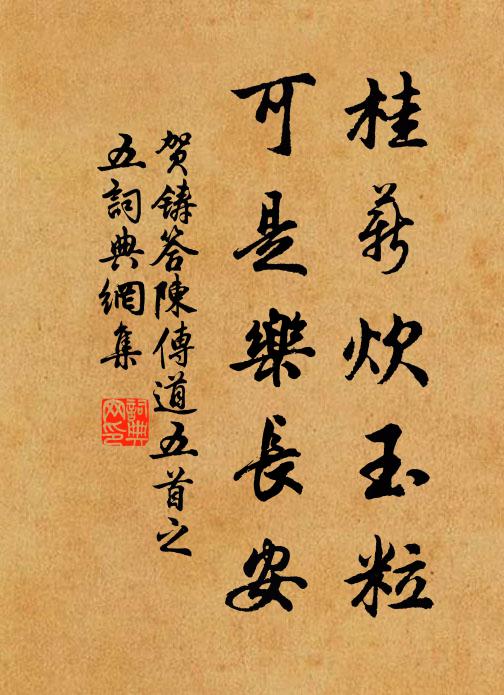 桂薪炊玉粒
可是樂長安
賀鑄答陳傳道五首之
五詞典網集
詞典
网印